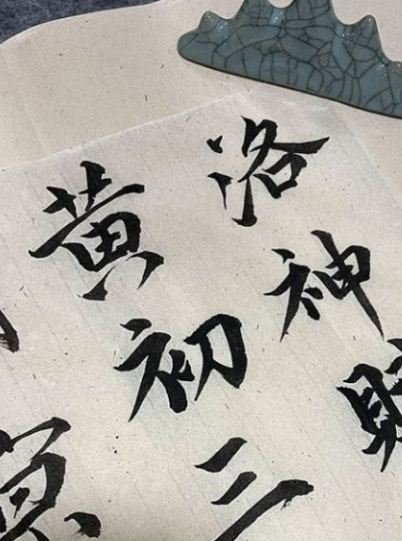 洛神賦
黄初三